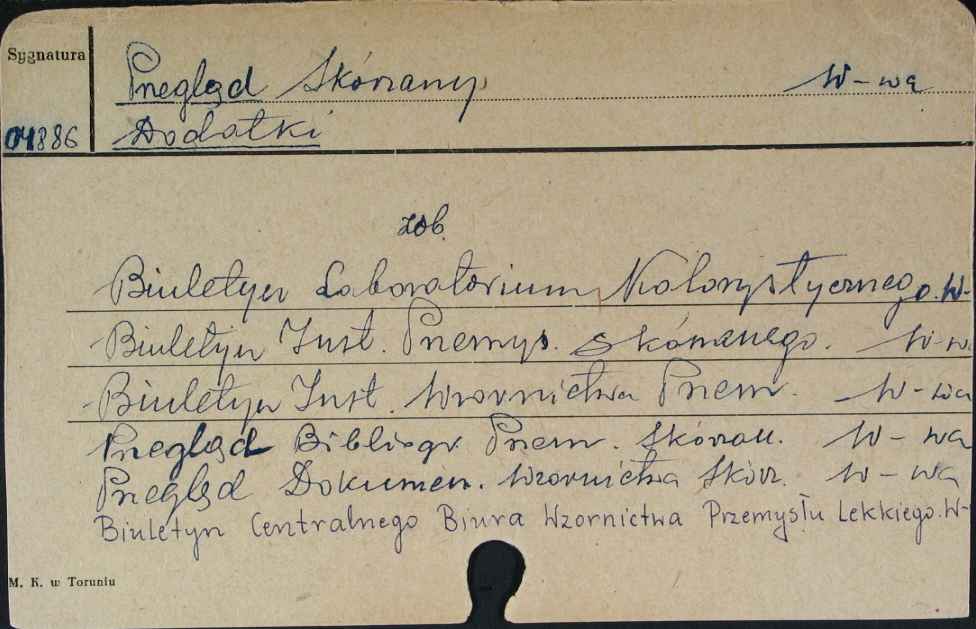 Sygnatura
Przegląd Skórzany W-wa
04886 Dodatki
zob.
Biuletyn Laboratorium Kolorystycznego. W-
Biuletyn Inst. Przemys. Skórzanego. W-wa
Biuletyn Inst. Wzornictwa Przem. W-wa
Przegląd Bibliogr. Przem. Skórzan. W-wa
Przegląd Dokumen. Wzornictwa Skórz. W-wa
Biuletyn Centralnego Biura Wzornictwa Przemysłu Lekkiego. W-
M. K. w Toruniu